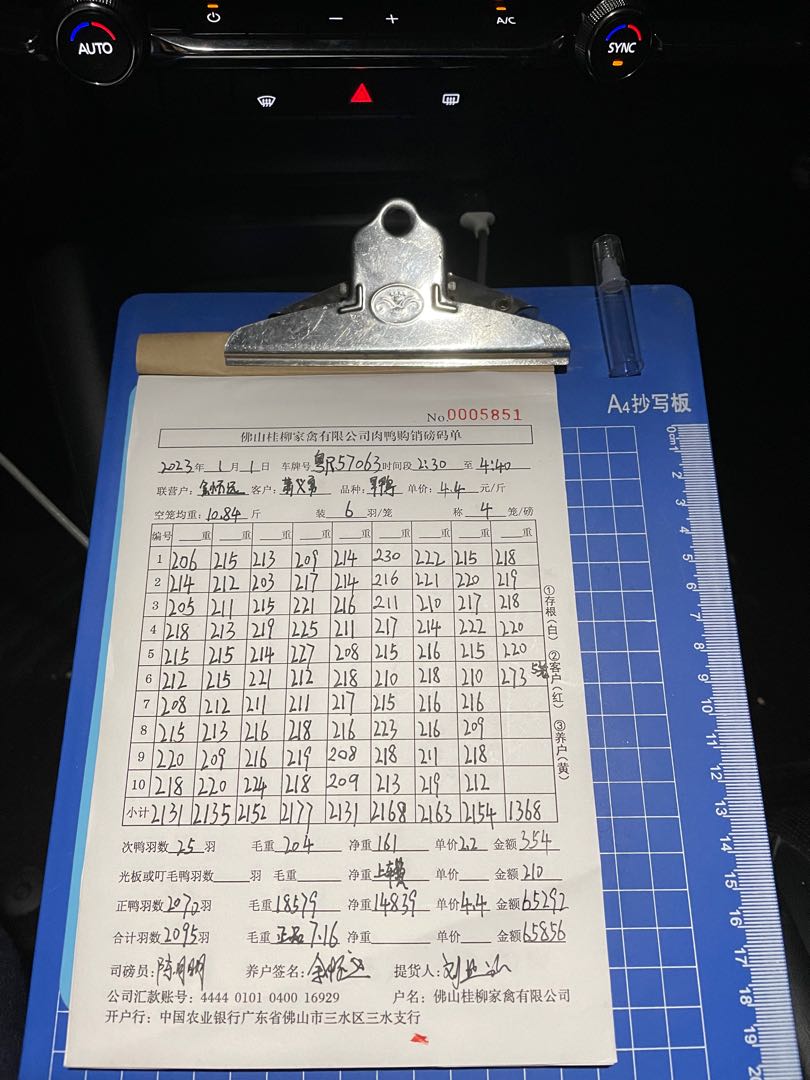 AUTO
− +
A/C
SYNC
A4抄写板
No.0005851
佛山桂柳家禽有限公司肉鸭购销磅码单
2023年 1月1日 车牌号粤R57063时间段2:30至4:40
联营户: 客户: 品种: 单价:4.4元/斤
空笼均重:10.84斤 装6羽/笼 称4笼/磅
编号 重 重 重 重 重 重 重 重 重
1 206 215 213 209 214 230 222 215 218
2 214 212 203 217 214 216 221 220 219
3 205 211 215 221 216 211 210 217 218
4 218 213 219 225 211 217 214 222 220
5 215 215 214 227 208 215 216 215 220
6 212 215 221 212 218 210 218 210 273 5笼
7 208 212 211 211 217 215 216 216
8 215 213 216 218 216 223 216 209
9 220 209 216 219 208 218 211 218
10 218 220 224 218 209 213 219 212
小计 2131 2135 2152 2177 2131 2168 2163 2154 1368
①存根(白) ②客户(红) ③养户(黄)
次鸭羽数25羽 毛重204 净重161 单价2.2 金额354
光板或叮毛鸭羽数 羽 毛重 净重 单价 金额210
正鸭羽数2070羽 毛重18579 净重14839 单价4.4 金额65292
合计羽数2095羽 毛重正品7.16 净重 单价 金额65856
司磅员: 养户签名: 提货人:
公司汇款账号: 4444 0101 0400 16929 户名: 佛山桂柳家禽有限公司
开户行: 中国农业银行广东省佛山市三水区三水支行
0cm 1 2 3 4 5 6 7 8 9 10 11 12 13 14 15 16 17 18 19 2